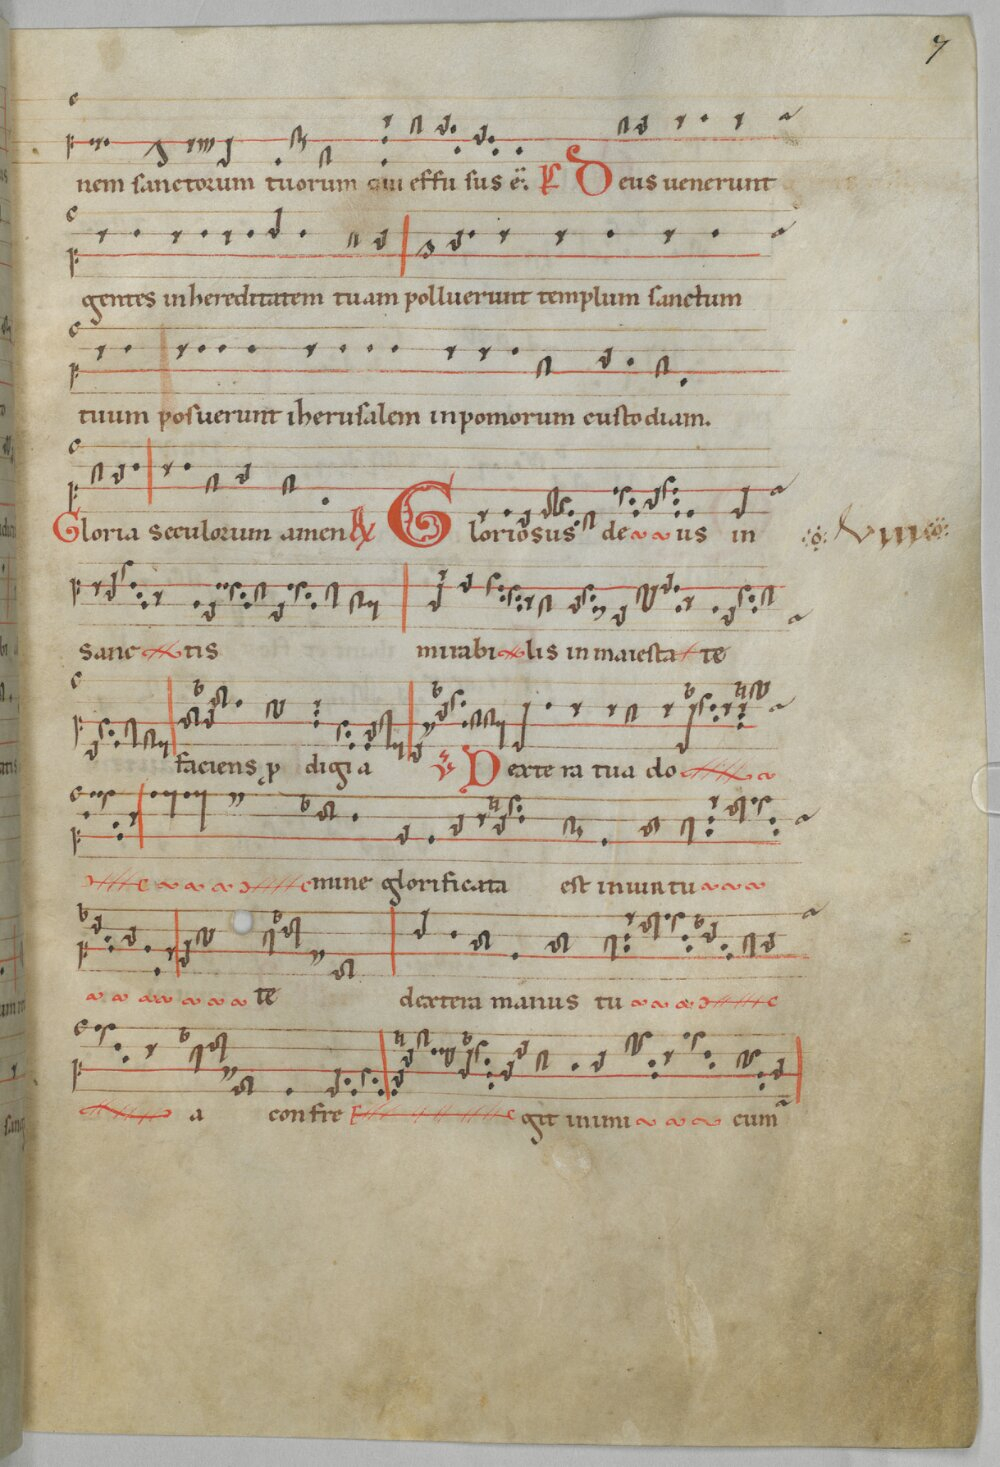 7
nem sanctorum tuorum qui effu sus ē. Ps Deus uenerunt
gentes inhereditatem tuam polluerunt templum sanctum
tuum posuerunt iherusalem inpomorum custodiam.
Gloria seculorum amen R Gloriosus deus in
VIII
sanctis mirabilis in maiestate
faciens p digia V Dextera tua do
mine glorificata est in uirtu
te dextera manus tu
a confregit inimicum